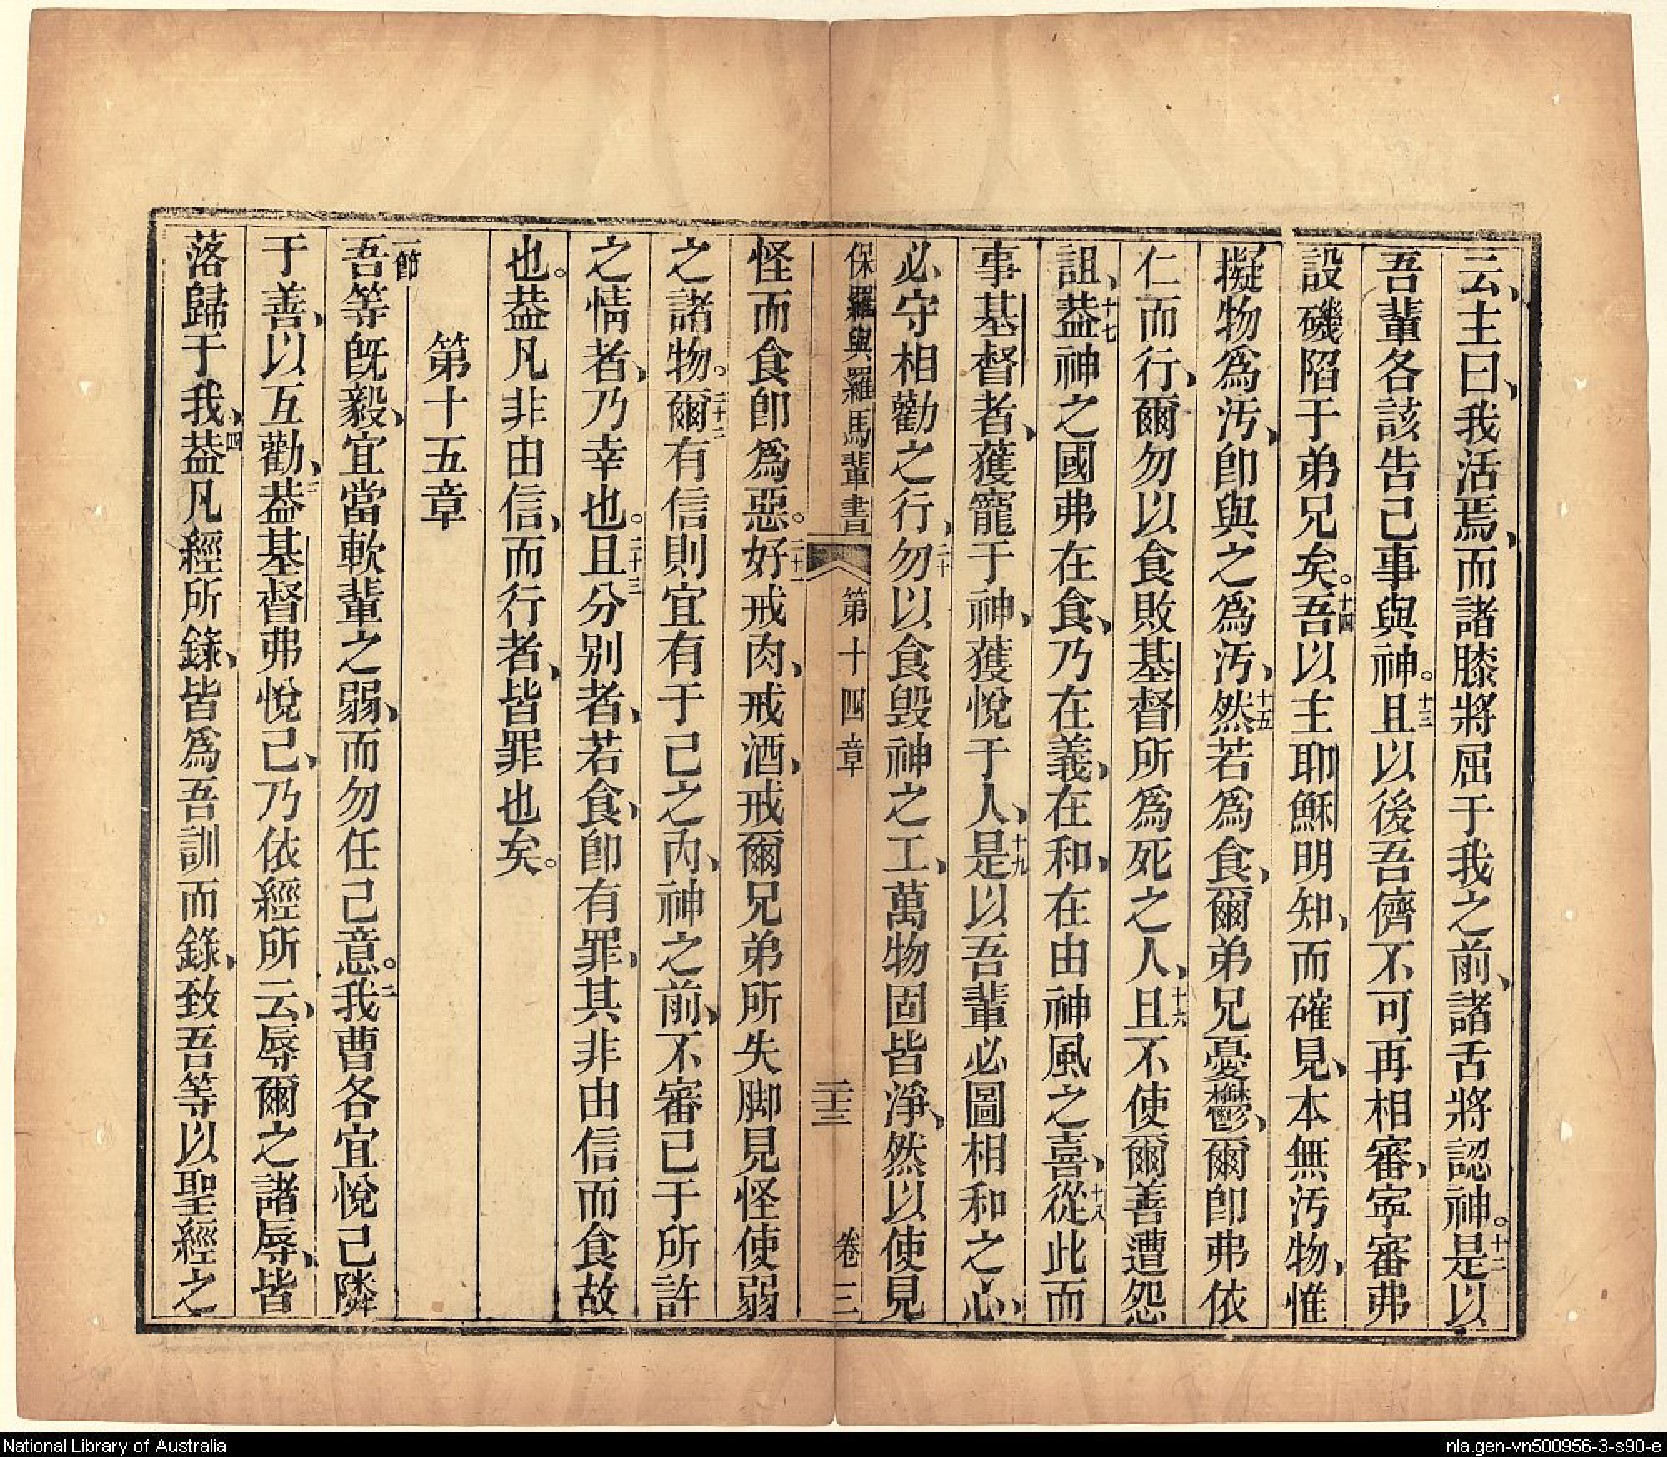 云、主曰、我活焉、而諸膝將屈于我之前、諸舌將認神。十二是以
吾輩各該告己事與神。十三且以後吾儕不可再相審、寧審弗
設磯陷于弟兄矣。十四吾以主耶穌明知、而確見、本無汚物、惟
擬物爲汚、卽與之爲汚、十五然若爲食、爾弟兄憂鬱、爾卽弗依
仁而行、爾勿以食敗基督所爲死之人、十六且不使爾善遭怨
詛、十七葢神之國弗在食、乃在義、在和、在由神風之喜、十八從此而
事基督者、獲寵于神、獲悅于人、十九是以吾輩必圖相和之心、
必守相勸之行、二十勿以食毁神之工、萬物固皆淨、然以使見
保羅與羅馬輩書 第十四章 二十三 卷三
怪而食卽爲惡。二十一好戒肉、戒酒、戒爾兄弟所失脚見怪使弱
之諸物。二十二爾有信則宜有于己之內、神之前、不審已于所許
之情者、乃幸也。二十三且分别者、若食、卽有罪、其非由信而食故
也。葢凡非由信、而行者、皆罪也矣。
第十五章
一節吾等旣毅、宜當軟輩之弱、而勿任己意。二我曹各宜悅己隣
于善、以互勸、三葢基督弗悅己、乃依經所云、辱爾之諸辱、皆
落歸于我、四葢凡經所錄、皆爲吾訓而錄、致吾等以聖經之
National Library of Australia
nla.gen-vn500956-3-s90-e